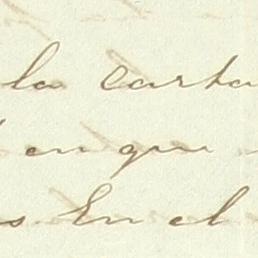 la carta
en que
s En el